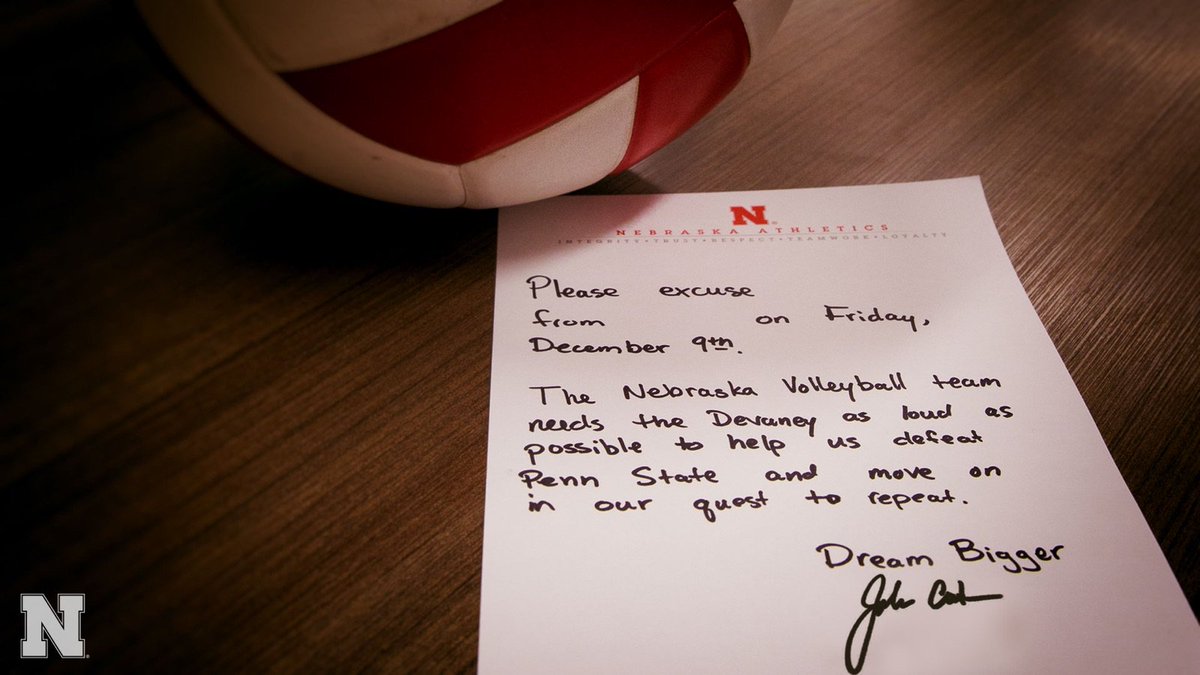 N
NEBRASKA ATHLETICS
INTEGRITY • TRUST • RESPECT • TEAMWORK • LOYALTY
Please excuse
from on Friday,
December 9th.
The Nebraska Volleyball team
needs the Devaney as loud as
possible to help us defeat
Penn State and move on
in our quest to repeat.
Dream Bigger
John Cook
N